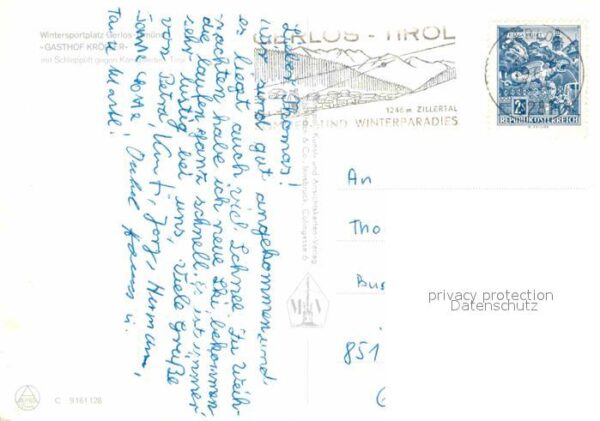 Wintersportplatz Gerlos
»GASTHOF KRÖLLER«
mit Schlepplift gegen
GERLOS - TIROL
1246 m ZILLERTAL
UND WINTERPARADIES
REPUBLIK ÖSTERREICH
Lieber Thomas!
sind gut angekommen und
es liegt auch viel Schnee. Zu Weih-
nachten habe ich neue Ski bekommen,
die laufen ganz schnell. Es ist immer
sehr lustig bei uns, viele Grüße
von Peter, Kurti, Jörg, Hermann,
Tante
Kunst- und Ansichtskarten-Verlag
& Co., Innsbruck,
An
Tho
Bus
851
privacy protection
Datenschutz
C 9161128